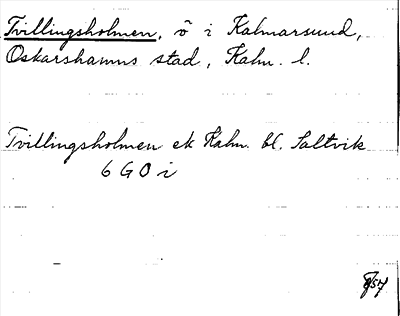 Tvillingsholmen, ö i Kalmarsund,
Oskarshamns stad, Kalm. l.
Tvillingsholmen ek Kalm. bl. Saltvik
6 G O i